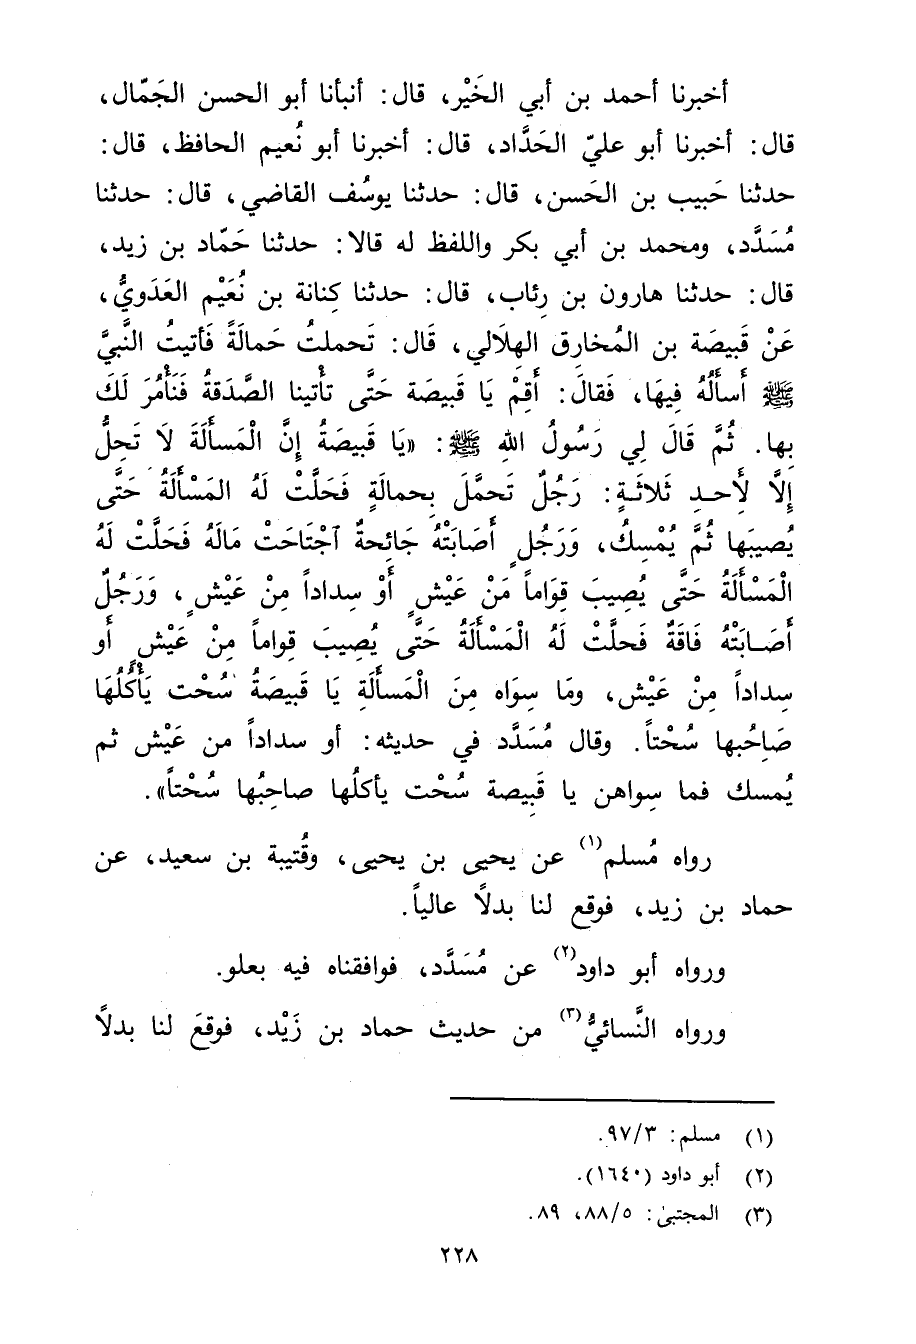 أخبرنا أحمد بن أبي الخَيْر، قال: أنبأنا أبو الحسن الجَمّال،
قال: أخبرنا أبو عليّ الحَدَّاد، قال: أخبرنا أبو نُعيم الحافظ، قال:
حدثنا حَبيب بن الحَسن، قال: حدثنا يوسُف القاضي، قال: حدثنا
مُسَدَّد، ومحمد بن أبي بكر واللفظ له قالا: حدثنا حَمّاد بن زيد،
قال: حدثنا هارون بن رِئاب، قال: حدثنا كِنانة بن نُعَيْم العَدَويُّ،
عَنْ قَبيصَة بن المُخارق الهِلَالي، قَال: تَحملتُ حَمالَةً فَأتيتُ النَّبيَّ
ﷺ أَسأَلُهُ فِيهَا، فَقالَ: أَقِمْ يَا قَبيصَة حَتَّى تأْتينا الصَّدَقةُ فَنَأْمُرَ لَكَ
بِها. ثُمَّ قَالَ لِي رَسُولُ اللهِ ﷺ: «يَا قَبِيصَةُ إِنَّ الْمَسأَلَةَ لَا تَحلُّ
إِلَّا لأَحـدِ ثَلاثَـةٍ: رَجُلٌ تَحمَّلَ بِحمالَةٍ فَحَلَّتْ لَهُ المَسْأَلَةُ حَتَّى
يُصيبَها ثُمَّ يُمْسِكُ، وَرَجُلٍ أَصَابَتْهُ جَائِحةٌ ٱجْتَاحَتْ مَالَهُ فَحَلَّتْ لَهُ
الْمَسْأَلَةُ حَتَّى يُصِيبَ قِوَاماً مَنْ عَيْشٍ أَوْ سِداداً مِنْ عَيْشٍ، وَرَجُلٌ
أَصَـابَتْهُ فَاقَةٌ فَحلَّتْ لَهُ الْمَسْأَلَةُ حَتَّى يُصِيبَ قِواماً مِنْ عَيْشٍ أَو
سِداداً مِنْ عَيْشٍ، ومَا سِوَاه مِنَ الْمَسأَلَةِ يَا قَبِيصَةُ سُحْت يَأْكُلُهَا
صَاحِبُها سُحْتاً. وقال مُسَدَّد في حديثه: أو سداداً من عَيْش ثم
يُمسك فما سِواهن يا قَبِيصة سُحْت يأكلُها صاحِبُها سُحْتاً».
رواه مُسلم(١) عن يحيى بن يحيى، وقُتيبة بن سعيد، عن
حماد بن زيد، فوقع لنا بدلًا عالياً.
ورواه أبو داود(٢) عن مُسَدَّد، فوافقناه فيه بعلو.
ورواه النَّسائيُّ(٣) من حديث حماد بن زَيْد، فوقعَ لنا بدلًا
(١) مسلم: ٩٧/٣.
(٢) أبو داود (١٦٤٠).
(٣) المجتبىٰ: ٨٨/٥، ٨٩.
٢٢٨